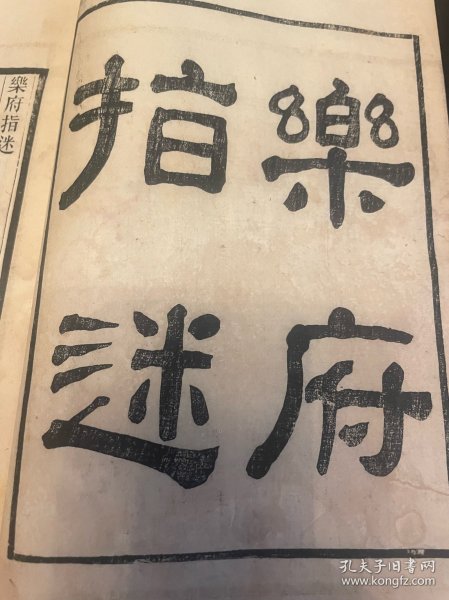 樂府
指迷
樂府指迷
孔夫子旧书网
www.kongfz.com